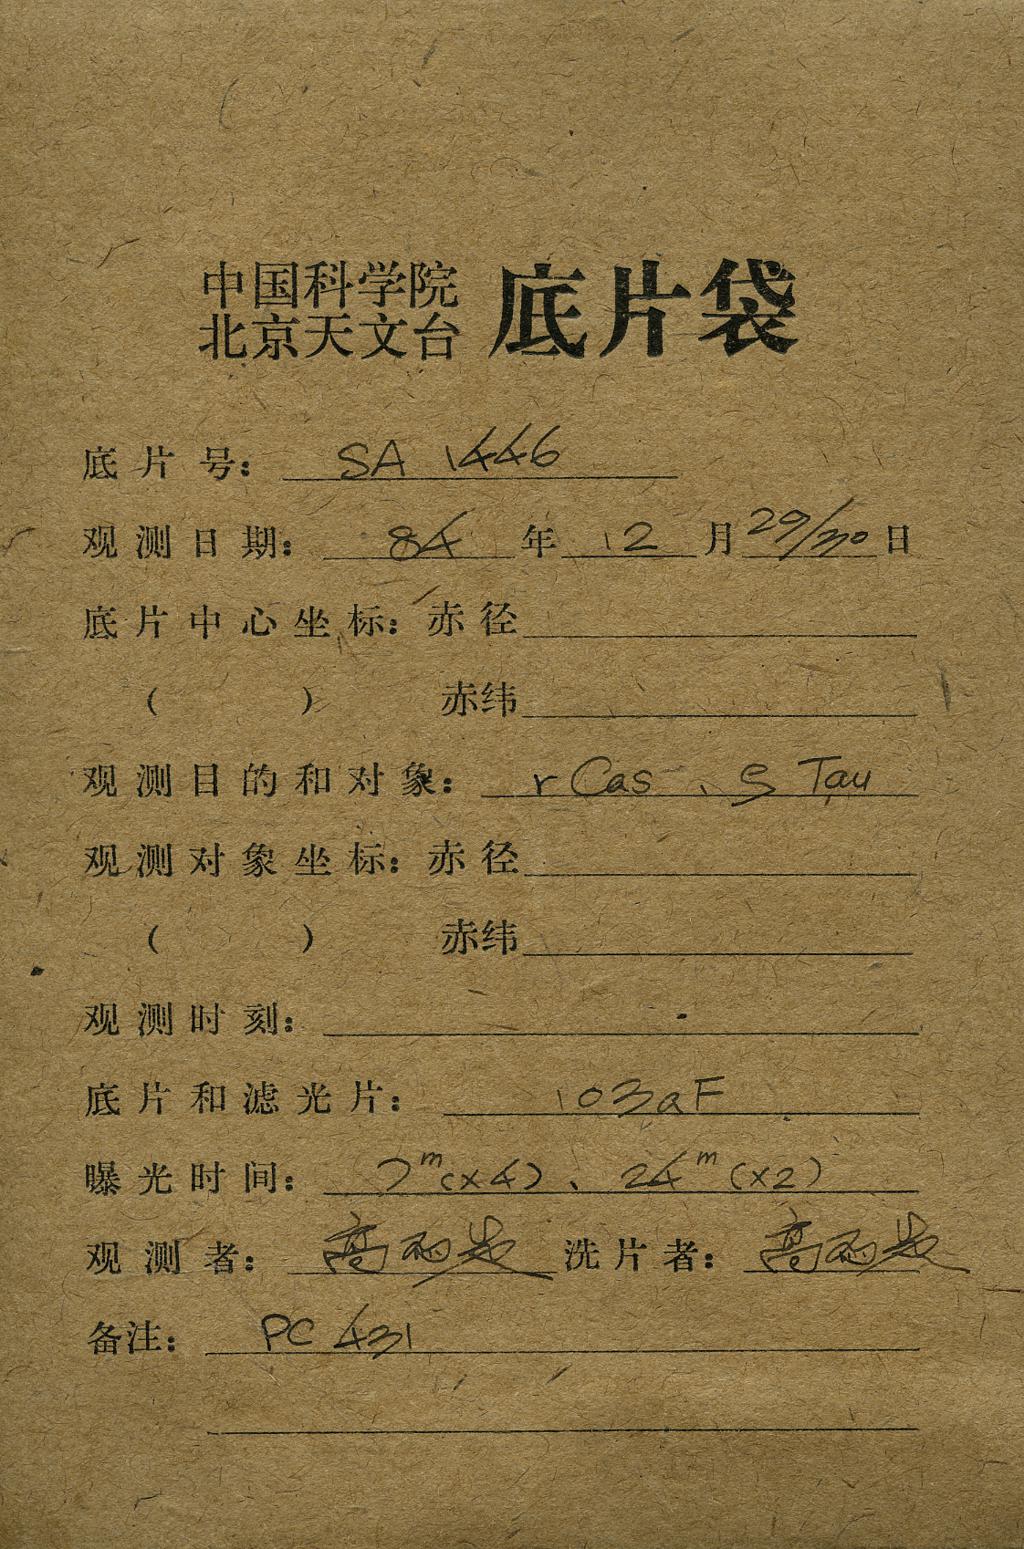 中国科学院
北京天文台 底片袋
底片号: SA 1446
观测日期: 84 年 12 月 29/30 日
底片中心坐标: 赤径
( ) 赤纬
观测目的和对象: r Cas 、 Tau
观测对象坐标: 赤径
( ) 赤纬
观测时刻:
底片和滤光片: 103aF
曝光时间: 7m(×4)、24m(×2)
观测者: 高 洗片者: 高
备注: PC 431